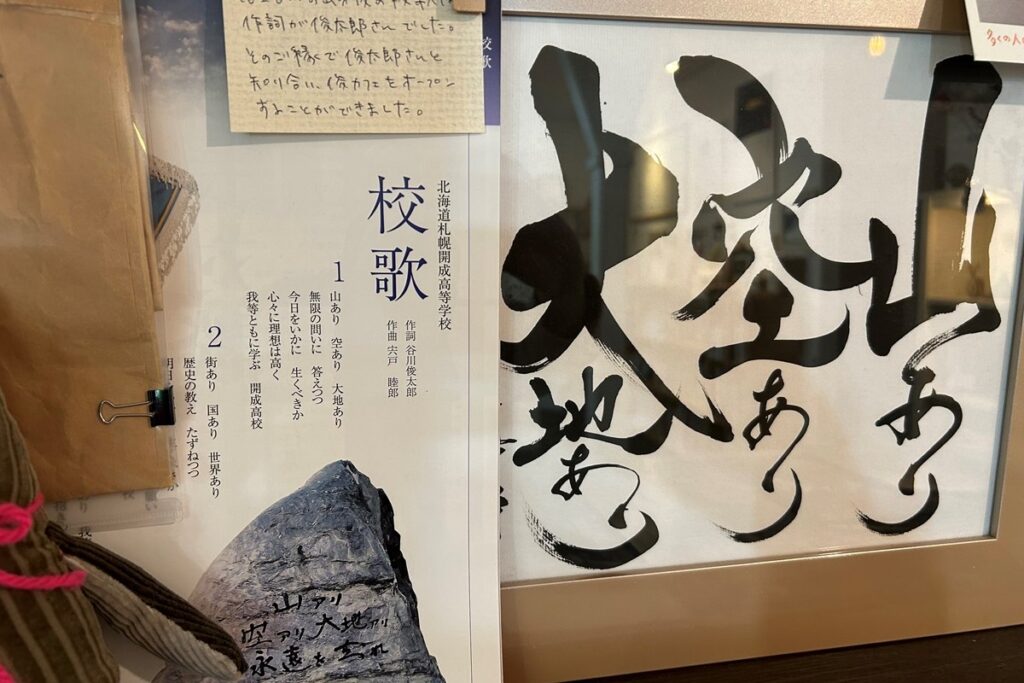 作詞が俊太郎さんでした。
そのご縁で俊太郎さんと
知り合い、俊カフェをオープン
することができました。
校歌
北海道札幌開成高等学校
校歌
作詞 谷川俊太郎
作曲 宍戸 睦郎
1
山あり 空あり 大地あり
無限の問いに 答えつつ
今日をいかに 生くべきか
心々に理想は高く
我等ともに学ぶ 開成高校
2
街あり 国あり 世界あり
歴史の教え たずねつつ
山アリ
空アリ 大地アリ
永遠を
山あり
空あり
大地あり
多くの人